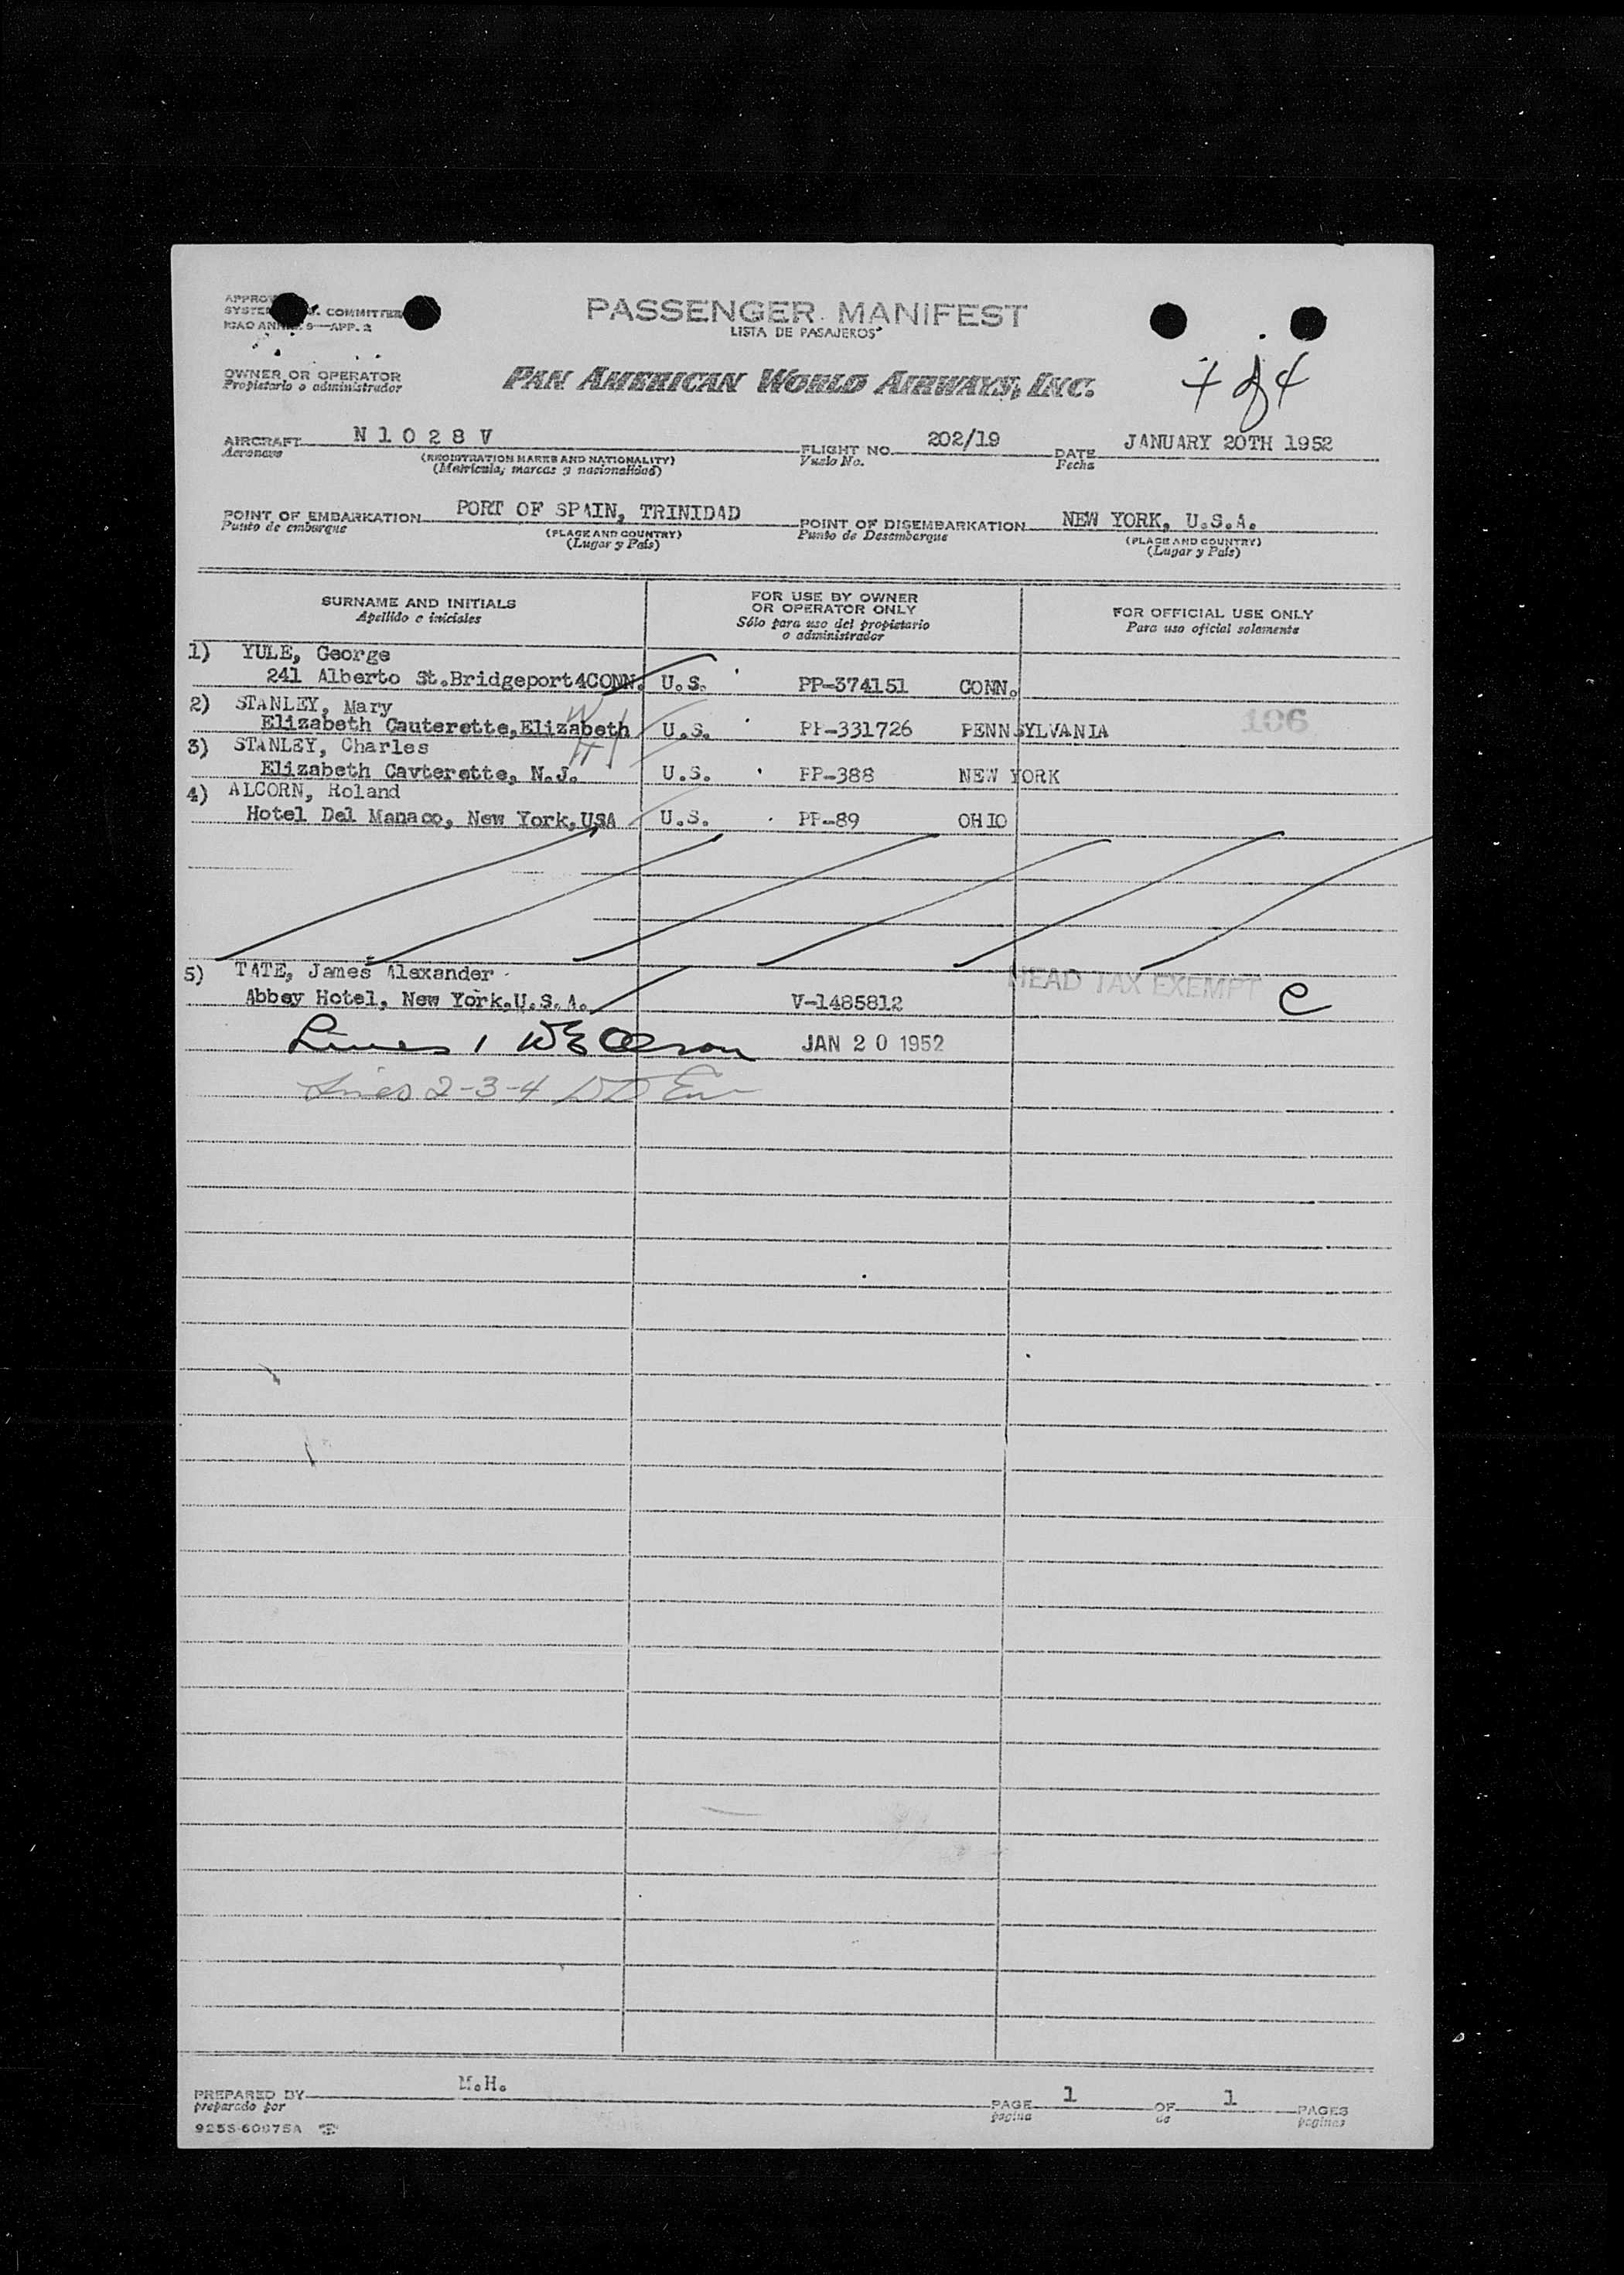 PASSENGER MANIFEST
LISTA DE PASAJEROS
COMMITTEE
ICAO 9—APP. 2
OWNER OR OPERATOR
Propietario o administrador
PAN AMERICAN WORLD AIRWAYS, INC.
of 4
AIRCRAFT N 1 0 2 8 V FLIGHT NO. 202/19 DATE JANUARY 20TH 1952
Aeronave (REGISTRATION MARKS AND NATIONALITY) Vuelo No. Fecha
(Matricula, marcas y nacionalidad)
POINT OF EMBARKATION PORT OF SPAIN, TRINIDAD POINT OF DISEMBARKATION NEW YORK, U.S.A.
Punto de embarque (PLACE AND COUNTRY) Punto de Desembarque (PLACE AND COUNTRY)
(Lugar y País) (Lugar y País)
SURNAME AND INITIALS
Apellido e iniciales
FOR USE BY OWNER
OR OPERATOR ONLY
Sólo para uso del propietario
o administrador
FOR OFFICIAL USE ONLY
Para uso oficial solamente
1) YULE, George
241 Alberto St.Bridgeport4CONN. U.S. PP-374151 CONN.
2) STANLEY, Mary
Elizabeth Cauterette,Elizabeth U.S. PP-331726 PENNSYLVANIA 106
3) STANLEY, Charles
Elizabeth Cavterette, N.J. U.S. PP-388 NEW YORK
4) ALCORN, Roland
Hotel Del Manaco, New York,USA U.S. PP-89 OHIO
5) TATE, James Alexander
HEAD TAX EXEMPT C
Abbey Hotel, New York,U.S.A. V-1485812
Lines 1 JAN 20 1952
Lines 2-3-4
PREPARED BY M.H. PAGE 1 OF 1 PAGES
preparado por pagina de paginas
925S-60075A